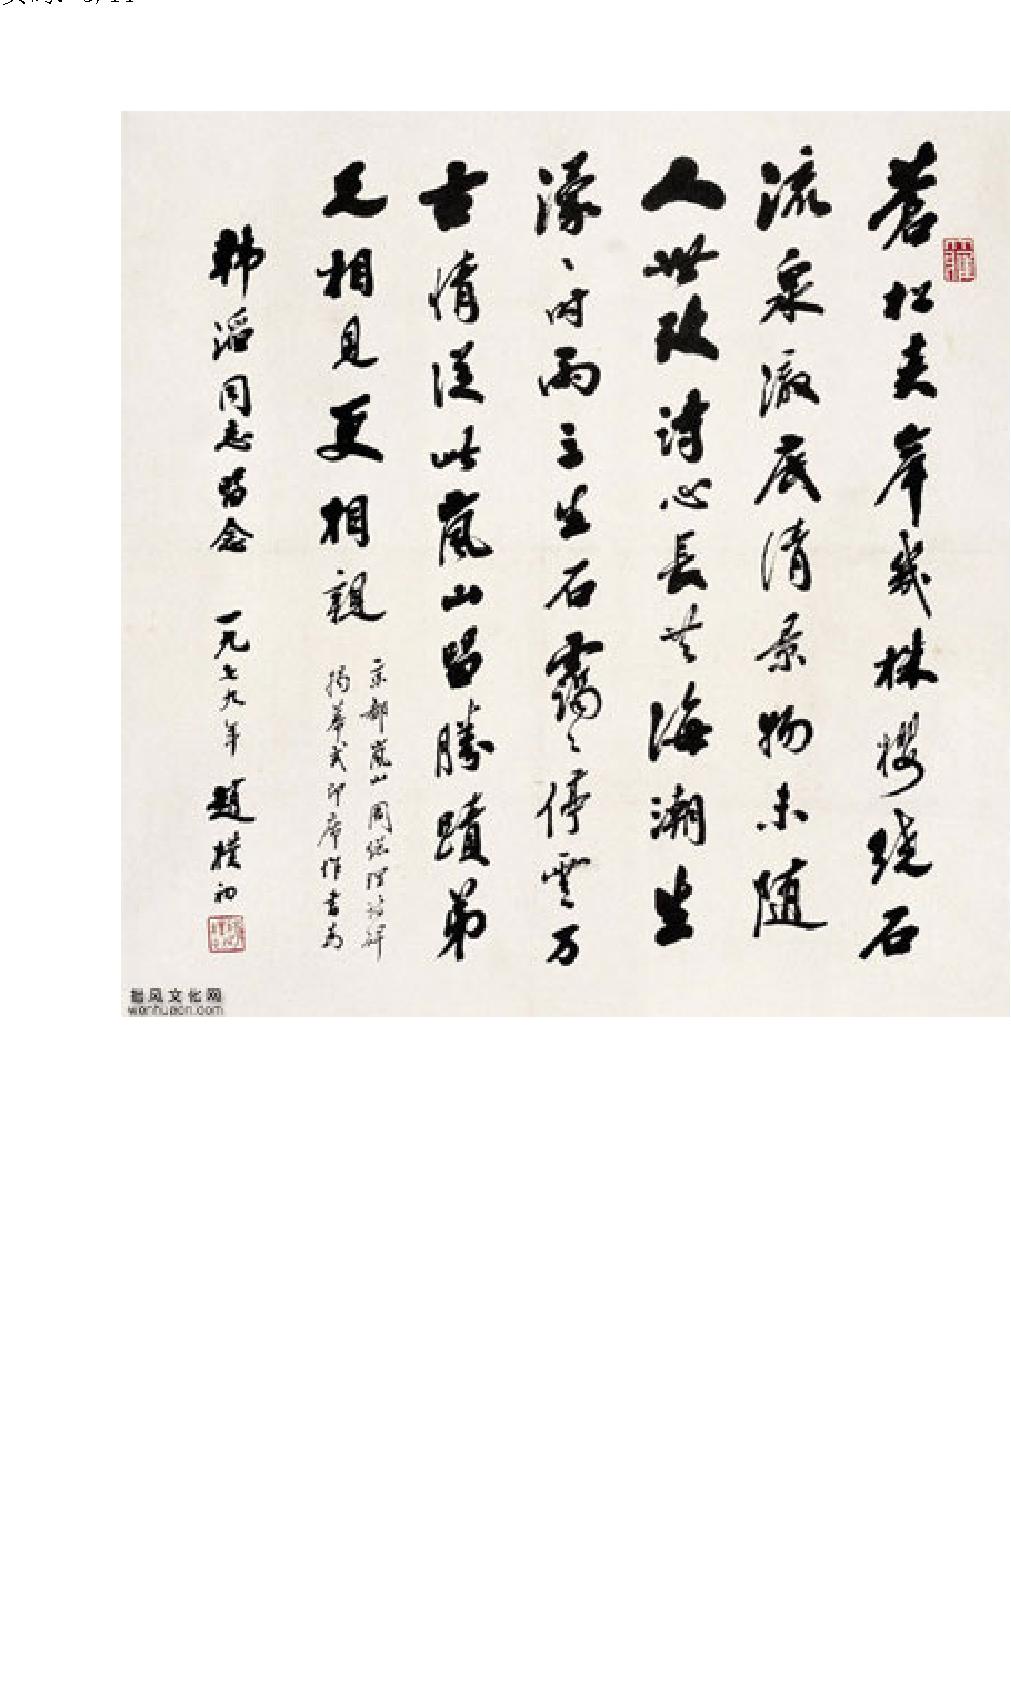 蒼松夹岸几株樱绕石
流泉澈底清景物未随
人世改诗心長共海潮生
濛、时雨立生石靄〻停雲万
古情從此嵐山留勝蹟弟
兄相見更相親
京都嵐山周总理诗碑
揭幕式即席作書為
韩滔同志留念 一九七九年 趙樸初
wenhuacn.com